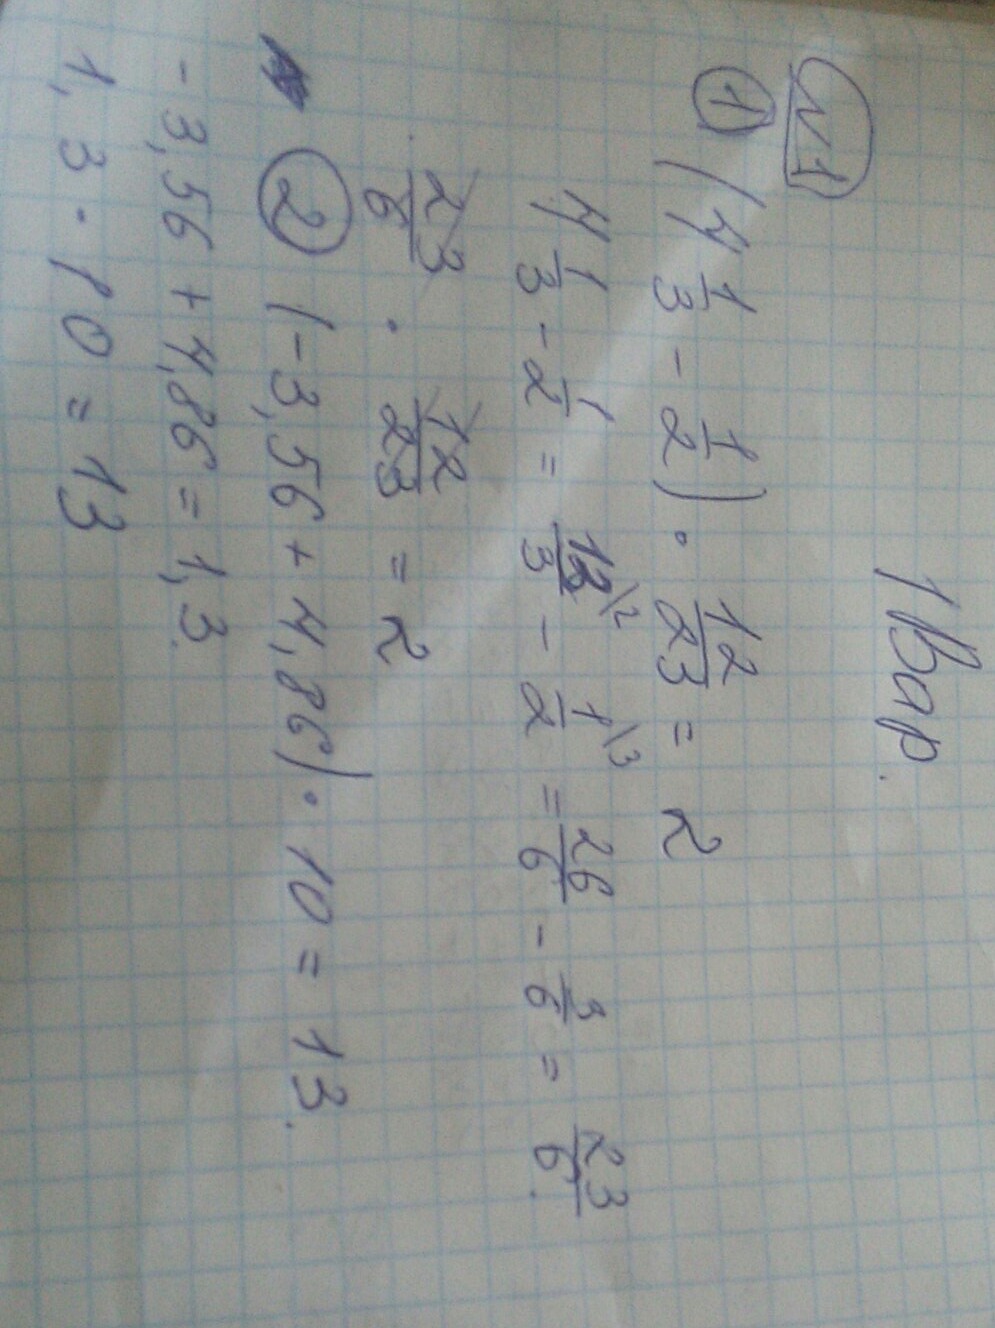 1 Вар.
№1
① (4 1/3 - 1/2) · 12/23 = 2
4 1/3 - 1/2 = 13/3 \2 - 1/2 \3 = 26/6 - 3/6 = 23/6.
23/6 · 12/23 = 2
② (-3,56 + 4,86) · 10 = 13.
-3,56 + 4,86 = 1,3.
1,3 · 10 = 13